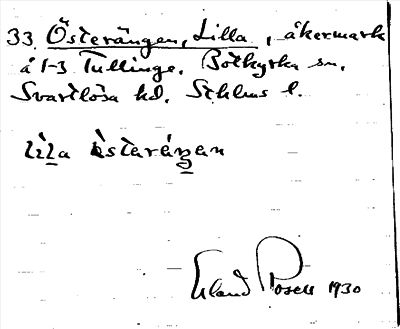 33. Österängen, Lilla, åkermark
å 1-3 Tullinge. Botkyrka sn.
Svartlösa hd. Sthlms l.
Erland Rosell 1930